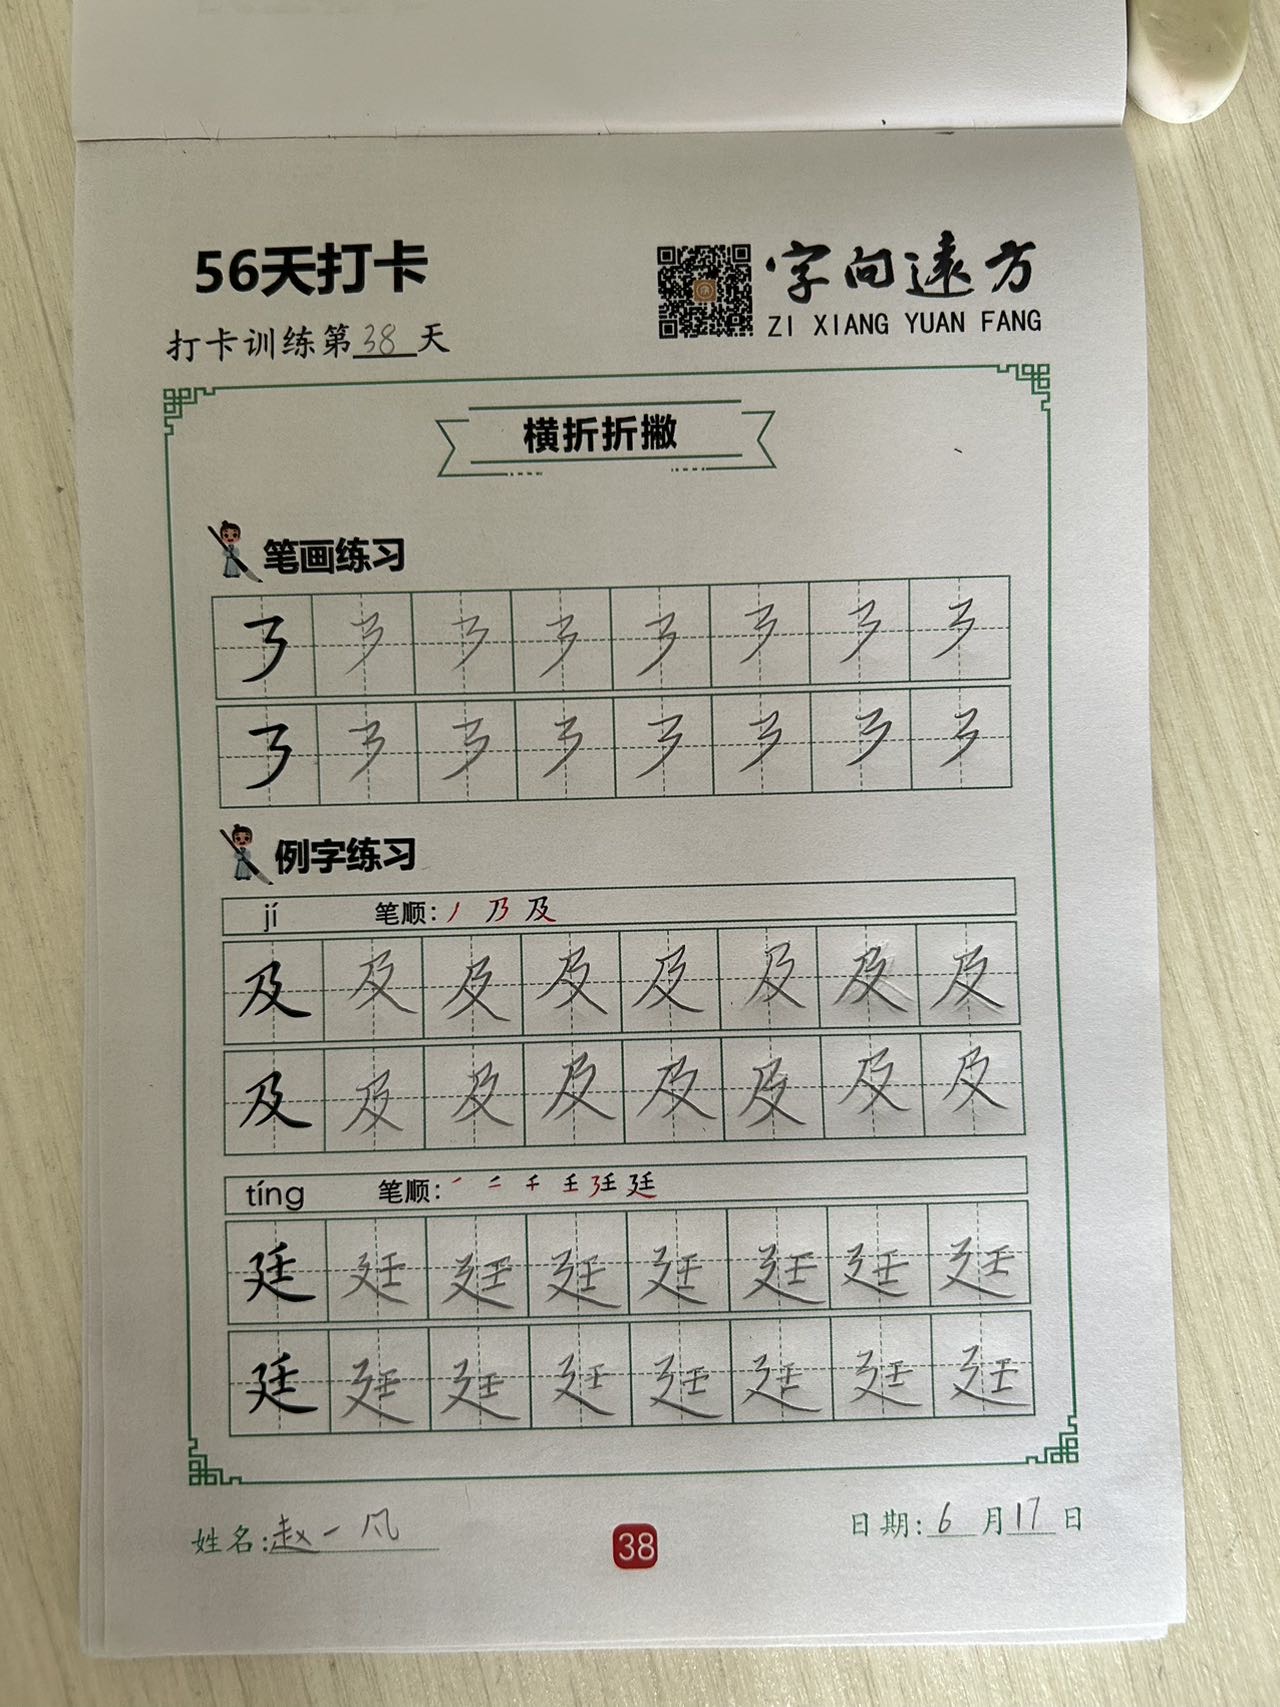 56天打卡
字向遠方
ZI XIANG YUAN FANG
打卡训练第38天
横折折撇
笔画练习
㇋ ㇋ ㇋ ㇋ ㇋ ㇋ ㇋ ㇋
㇋ ㇋ ㇋ ㇋ ㇋ ㇋ ㇋ ㇋
例字练习
jí 笔顺: 丿 乃 及
及 及 及 及 及 及 及 及
及 及 及 及 及 及 及 及
tíng 笔顺: ㇒ 二 千 壬 廷
廷 廷 廷 廷 廷 廷 廷 廷
廷 廷 廷 廷 廷 廷 廷 廷
姓名:赵一凡
38
日期:6月17日